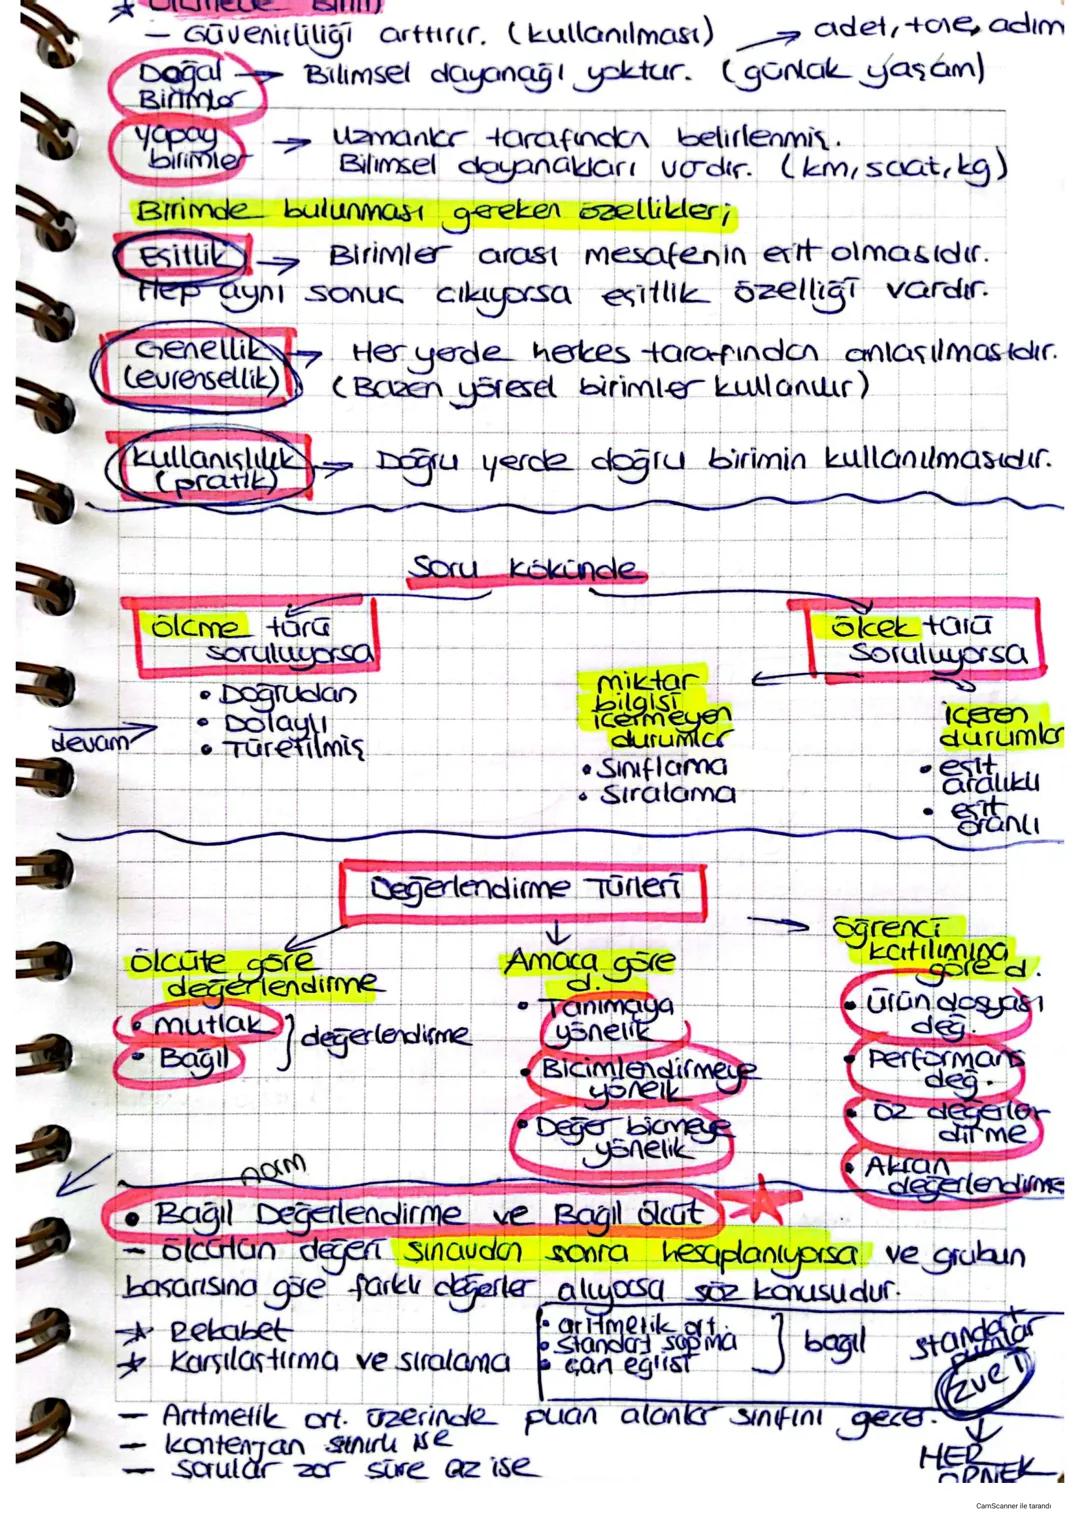 * ölçmede Birim
— Güvenirliliği arttırır. (kullanılması) → adet, tane, adım
Doğal Birimler → Bilimsel dayanağı yoktur. (günlük yaşam)
Yapay birimler → Uzmanlar tarafından belirlenmiş.
Bilimsel dayanakları vardır. (km, saat, kg)
Birimde bulunması gereken özellikler;
Eşitlik → Birimler arası mesafenin eşit olmasıdır.
Hep aynı sonuç çıkıyorsa eşitlik özelliği vardır.
Genellik (evrensellik) → Her yerde herkes tarafından anlaşılmasıdır.
(Bazen yöresel birimler kullanılır)
Kullanışlılık (pratik) → Doğru yerde doğru birimin kullanılmasıdır.
Soru kökünde
ölçme türü soruluyorsa
• Doğrudan
• Dolaylı
• Türetilmiş
devam →
ölçek türü soruluyorsa
miktar bilgisi içermeyen durumlar
• Sınıflama
• Sıralama
içeren durumlar
• eşit aralıklı
• eşit oranlı
Değerlendirme Türleri
ölçüte göre değerlendirme
• mutlak
• Bağıl
değerlendirme
Amaca göre d.
• Tanımaya yönelik
• Biçimlendirmeye yönelk
• Değer biçmeye yönelik
öğrenci katılımına göre d.
• ürün dosyası değ.
• Performans değ.
• öz değerlendirme
• Akran değerlendirme
• Bağıl Değerlendirme ve Bağıl ölçüt
— ölçütün değeri sınavdan sonra hesaplanıyorsa ve grubun
başarısına göre farklı değerler alıyorsa söz konusudur.
* Rekabet
* Karşılaştırma ve sıralama
• aritmetik ort.
• standart sapma
• çan eğrisi
bağıl
standart puanlar
Z ve T
— Aritmetik ort. üzerinde puan alanlar sınıfını geçer.
— kontenjan sınırlı ise
— sorular zor süre az ise
HER
ÖRNEK
CamScanner ile tarandı